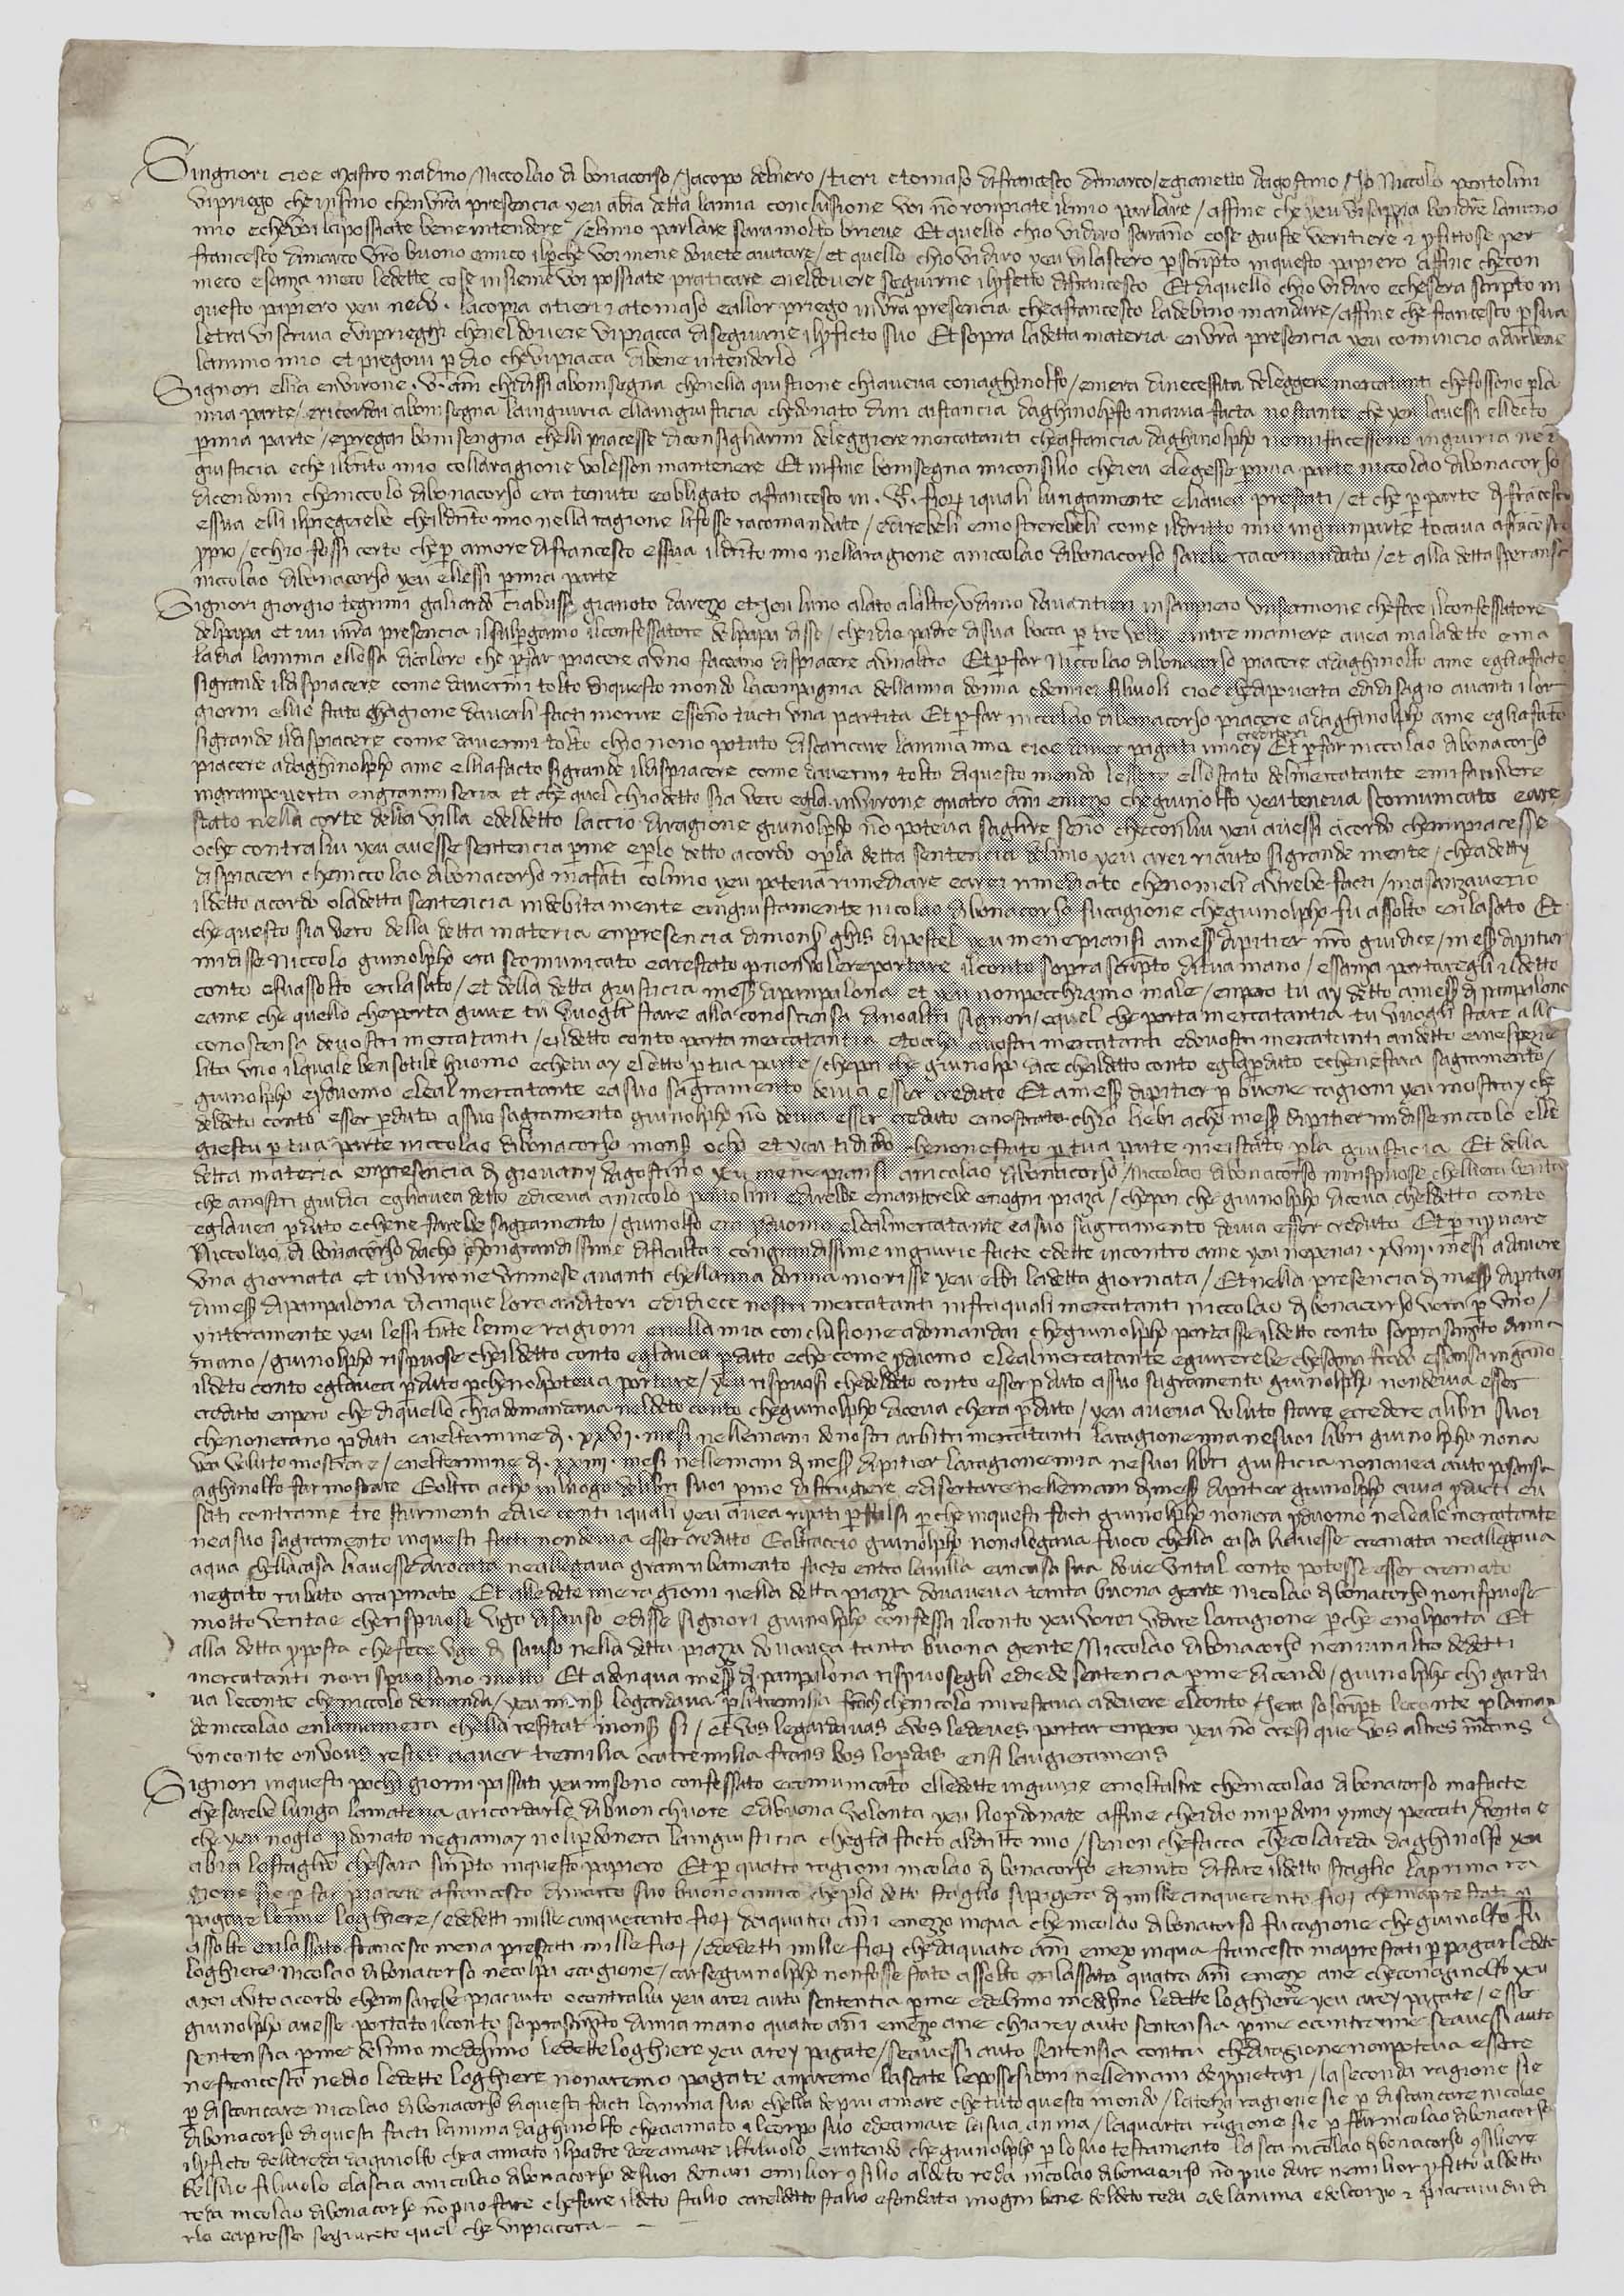 Singnori cioe Mastro nadino / Niccolao di bonacorso / Jacopo delnero / tieri etomaso difrancesco dimarco / egianetto dagostino / Jo Niccolo pentolini
vipriego che insino chenvra presencia yeu abia detta lamia conclusione voi no ronpiate ilmio parlare / affine che yeu visappia bendire lanimo
mio echevoi lipossiate bene intendere / elmio parlare sara molto brieve Et quello chio vidiro sarano cose giuste veritiere et pfittose per
francesco dimarco vro buono amico ilpche voi mene dovete aiutare / et quello chio vidiro yeu vilascero p scripto inquesto papiero affine checon
meco esanza meco ledette cose insieme voi possiate praticare eneldovere seguirne ilpfetto difrancesco Et diquello chio vidiro echesera scripto in
questo papiero yeu nedo lacopia atieri et atomaso eallor priego invra presencia cheafrancesco ladebino mandare / affine che francesco p sua
letra viscriva eviprieghi cheneldovere vipiacca diseguirne ilpficto suo Et sopra ladetta materia envra presencia yeu comincio adirvene
lanimo mio et pregovi p dio chevipiacca dibene intenderlo
Signori ellia environe . v . ani chidissi abonisegna chenella quistione chiaveva conaghinolfo / emera dinecessita deleggere mercatanti chefossono pla
mia parte / ericordai abonisegna laingiuria ellaingiusticia chedonato dini aistancia daghinolpho mavia facta nostante che yeu lavessi ellecto
pmia parte / epregai bonisengna chelli piacesse diconsigliarmi deleggiere mercatanti cheastancia daghinolpho nomifacessono ingiuria nein
giusticia eche ildritto mio collaragione volesson mantenere Et infine bonisegna miconsilio cheieu elegesse pmia parte niccolao dibonacorso
dicendomi cheniccolo dibonacorso era tenuto eobligato afrancesco in . v . fiorj iquali lungamente eliavea prestati / et che p parte di francesco
essua elli ilpregerebe cheildritto mio nella ragione lifosse racomandato / edirebeli emostrerebeli come ildritto mio ingranparte tocava afrancesco
ppio / echio fossi certo chep amore difrancesco essua ildritto mio nellaragione aniccolao dibonacorso sarebe racomandato / et alla detta speransa
niccolao dibonacorso yeu ellessi pmia parte
Signori giorgio tegrimi galiardo ciabussi gianoto darezzo etyeu luno alato alaltro / udimo davantieri insanpiero unsermone chefece ilconfessatore
delpapa et ivi invra presencia ilsulpgamo ilconfessatore delpapa disse / cheidio padre disua bocca p tre volte entre maniere avea maladetto ema
ladia lanima ellossa dicoloro che pfar piacere auno faceano dispiacere aunaltro Et pfar Niccolao dibonacorso piacere adaghinolfo ame egliafacto
sigrande ildispiacere come davermi tolto diquesto mondo lacompagnia dellamia donna edemiei filivoli cioe chedapoverta edidisagio avanti ilor
giorni ellie stato chagione daverli facti morire esseno tucti una partita Et pfar niccolao dibonacorso piacere adaghinolpho ame egliafacto
sigrande ildispiacere come davermi tolto chio nono potuto discaricare lanima mia cioe daver pagati imiey creditori Et pfar niccolao dibonacorso
piacere adaghinolpho ame elliafacto sigrande ildispiacere come davermi tolto diquesto mondo lessere ellostato delmercatante emifavivere
ingranpoverta engranmiseria et che quel chiodetto sia vero egla invirone quatro ani emezo che guinolfo yeuteneva scomunicato eare
stato nella corte della villa edeldetto laccio diragione guinolpho no poteva saglire seno checonlui yeu avessi acordo chemipiacesse
oche contralui yeu avesse sentencia pme eplo detto acordo opla detta sentencia delmio yeu arei riauto sigrande mente / cheadetty
dispiaceri cheniccolao dibonacorso mafati colmio yeu poteva rimediare earei rimediato chenomeli avrebe facti / masanzaverio
ildetto acordo oladetta sentencia indebitamente eingiustamente nicolao dibonacorso fucagione cheguinolpho fu assolto erilasato Et
che questo sia vero della detta materia enpresencia dimons ghis dipestel yeu menepiansi amess dipitier nro guidice / mess dipitier
midisse Niccolo guinolpho era scomunicato earestato p nonvolereportare ilconto soprascripto dituamano / essanza portaregli ildetto
conto efuassolto erilasato / et della detta giusticia mess dipanpalona et yeu nonpecchiamo male / enpero tu ay detto amess di panpalona
eame che quello cheporta giure tu vuogli stare alla conoscensa dinoaltri signori / equel che porta mercatantia tu vuogli stare alla
conoscensa devostri mercatanti / eildetto conto porta mercatantia etocha avostri mercatanti edevostri mercatanti andetto emespezie
lita uno ilquale bensotile huomo echetu ay eletto p tua parte / cheppoi che guinolpho dice cheildetto conto eglapduto echenefara sagramento /
guinolpho epduomo eleal mercatante easuo sagramento devia esser creduto Et amess dipitier p buone ragioni yeu mostray che
deldetto conto esser pduto assuo sagramento guinolpho no devia esser creduto emostrato chio liebi acho mess dipitier midisse niccolo elle
giestu p tua parte niccolao dibonacorso mons ocho et yeu tidicho chenonestato p tua parte neistato pla giusticia Et della
detta materia enpresencia di giovany dagostino yeu menepiansi anicolao dibonacorso / Niccolao dibonacorso mirispuose chellera verita
che anostri giudici egliavea detto ediceva aniccolo pentolini edirebe emanterebe enogni piaza / cheppoi che guinolpho diceva cheldetto conto
eglavea pduto echene farebe sagramento / guinolfo era pduomo elealmercatante easuo sagramento devia esser creduto Et p ripvare
Niccolao di bonacorso dacho congrandissime dificulta et congrandissime ingiurie facte edette incontro ame yeu nepenai . xviii . mesi adavere
una giornata et invirone unmese avanti chellamia donna morisse yeu ebi ladetta giornata / Et nella presencia di mess dipitier
dimess dipanpalona dicinque loro auditori edidiece nostri mercatanti infraiquali mercatanti niccolao di bonacorso vera p uno /
ynteramente yeu lessi tute lemie ragioni enellamia conclusione adomandai cheguinolpho portasse ildetto conto soprascripto dimia
mano / guinolpho rispuose cheildetto conto eglavea pduto eche come pduomo elealmercatante egiurerebe chesanza frodo essansa ingano
ildeto conto eglavea pduto pchenolpoteva portare / yeu rispuosi chedeldeto conto esser pduto assuo sagramento guinolpho nondevia esser
creduto enpero che diquello chiadomandava neldeto conto cheguinolpho diceva chera pduto / yeu aveva voluto stare ecredere alibri suoi
chenonerano pduti eneltermine di . xxvi . mesi nellemani denostri arbitri mercatanti laragionemia nesuoi libri guinolpho nona
vea voluto mostrare / eneltermine di . xviiii . mesi nellemani di mess dipitier laragionemia nesuoi libri giusticia nonavea auto posansa
aghinolfo farmostrare Eoltra acho inluogo delibri suoi pme distrugiere edisertare nellemani dimess dipitier guinolpho avia pducti eu
sati contrame tre sturmenti edue conti iquali yeu avea ripati pfalsi pche inquesti facti guinolpho nonera pduomo neleale mercatante
neasuo sagramento inquesti facti nondevia esser creduto Eoltraccio guinolpho nonalegava fuoco chella casa liavesse cremata neallegava
aqua chellacasa liavesse dirocata neallegava granrubamento facto entro lavilla eincasa sua dove untal conto potesse esser cremato
negato rubato orapinato Et alle dete mie ragioni nella detta piazza dovaveva tanta buona gente nicolao di bonacorso norispuose
motto veritae cherispuose ugo disauso edisse signori guinolpho confessa ilconto yeu vorei udire laragione pche enolporta Et
alla detta pposta chefece ugo di sauso nella detta piaza dovavea tanta buona gente / Niccolao dibonacorso neniunaltro dedetti
mercatanti norispuosono motto Et adonqua mess di panpalona rispuosegli ediede sentencia pme dicendo / guinolpho chi garda
va leconte cheniccolo demanda / yeu mons logardava plitremilia franchi chenicolo mirestava adevere elconto Jera soscript leconte plaman
deniccolao enlamaniera chella restat mons si / et vos legardavas evos ledeves portar enpero yeu no cresi que vos altres mrcans
unconte onvous restes aaver tremilia ocatremilia frans vos loperdas ensi laugieramens
Signori inquesti pochi giorni passati yeu misono confessato ecomunicato elledette ingiurie emoltaltre cheniccolao dibonacorso mafacte
chesarebe lunga lamateria aricordarle dibuon chuore edibuona volonta yeu liopdonate affine cheidio mipdoni ymiey peccati / verita e
che yeu noglo pdonato negiamay noliperdonera laingiusticia chegla facto aldritto mio / senon chefacca checolareda daghinolfo yeu
abia lostaglio chesara scripto inquesto papiero Et p quatro ragioni nicolao di bonacorso etenuto difare ildetto staglio laprima ra
gione sie p far piacere afrancesco dimarco suo buono amico cheplo detto staglio sipagera di mille cinquecento fiorj chemaprestati a
pagare lemie loghiere / ededetti mille cinquecento fiorj daquatro ani emezzo inqua chenicolao dibonacorso fucagione cheguinolfo fu
assolto erilassato francesco mena prestati mille fiorj / ededetti mille fiorj chedaquatro ani emezo inqua francesco maprestati p pagar ledete
loghiere Nicolao dibonacorso necolpa ecagione / carseguinolpho nonfosse stato assolto erilassato quatro ani emezo ane checonaginolfo yeu
arei auto acordo chemisarebe piaciuto ocontralui yeu arei auto sentencia pme edelmio medesimo ledette loghiere yeu arey pagate / esser
guinolpho avesse portato ilconto soprascripto dimia mano quatro ani emezo ane chiarey auto sentensia pme ocontrame seavessi auto
sentensia pme delmio medesimo ledetteloghiere yeu arey pagate / seavessi auto sentensia contra chediragione nonpoteva essere
nefrancesco nedio ledette loghiere nonaremo pagate anziaremo lasciate lepossesioni nellemani depprietari / la seconda ragione sie
p discaricare nicolao dibonacorso diquesti facti lanima sua chella de piu amare che tuto questo mondo / laterza ragione sie p discaricare nicolao
dibonacorso diquesti facti lanima daghinolfo cheaamato ilcorpo suo edeamare lasua anima / laquarta ragione sie p far nicolao dibonacorso
ilpficto dellereda daginolfo chea amato ilpadre edeamare ilfilivolo emtendo che guinolpho p lo suo testamento lascia nicolao di bonacorso gsiliere
delsuo filivolo elascia anicolao dibonacorso desuoi denari emilior gsilio aldeto reda nicolao dibonacorso no puo dare nemilior pfitto aldetto
reda nicolao dibonacorso no puo fare chefare ildeto stalio careldetto stalio efondata inogni bene deldeto reda ede lanima edelcorpo et piacciavi du di
rlo eapresso seguirete quel che vipiacera